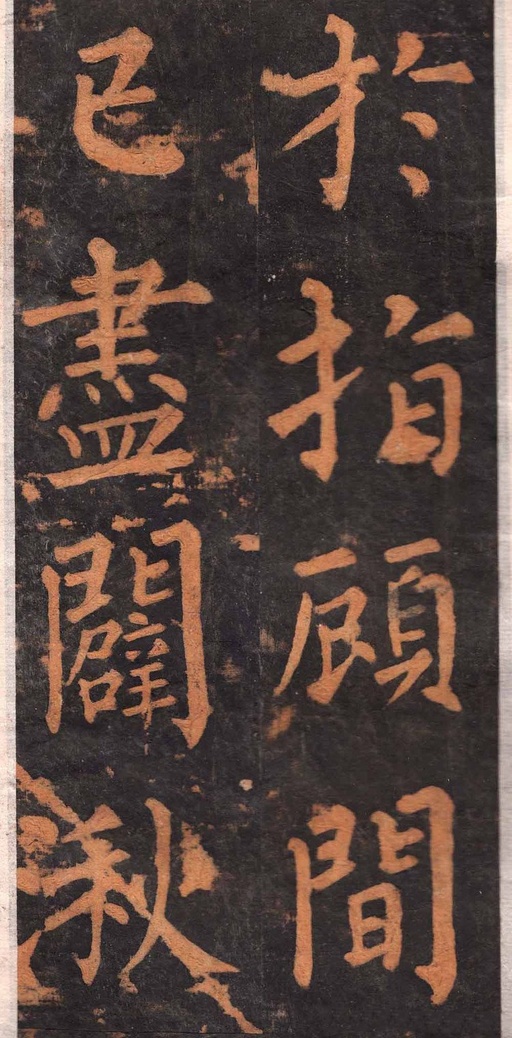 於指顧間
已盡闢秋